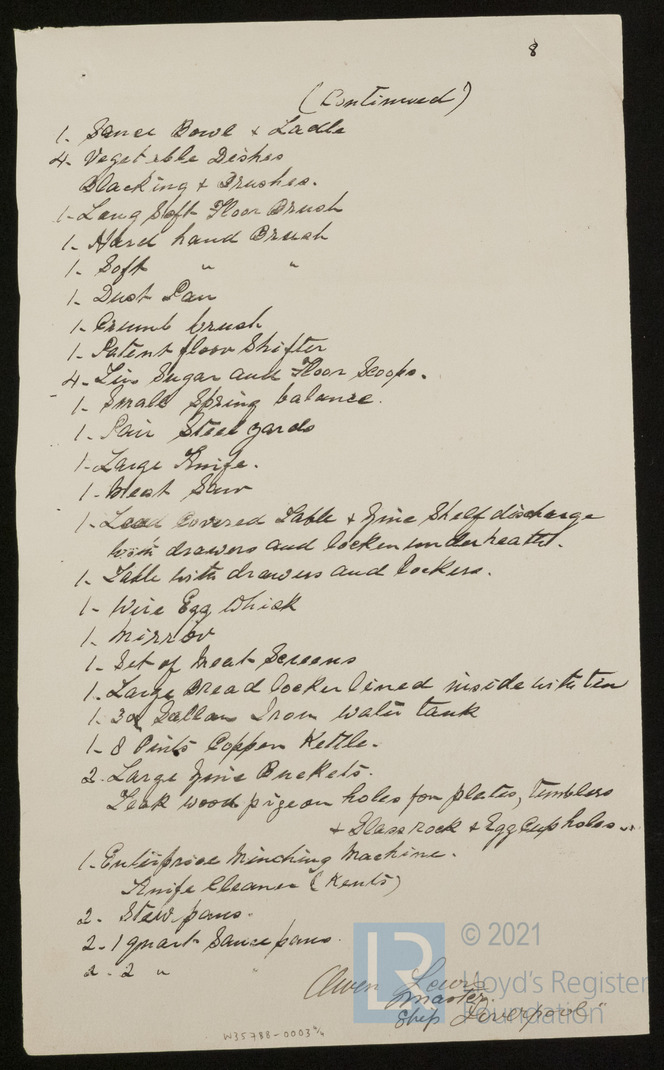 8
(Continued)
1. Sauce Bowl & Ladle
4. Vegetable Dishes
Blacking & Brushes.
1- Long Soft Floor Brush
1. Hard hand Brush
1. Soft " "
1. Dust Pan
1. Crumb brush
1. Patent floor Shifter
4- Tin Sugar and Floor Scoops.
1. Small Spring balance.
1. Pair Steel yards
1- Large Knife.
1- Meat Saw
1- Lead Covered Table & Zinc Shelf discharge
with drawers and locker underneath.
1. Table with drawers and lockers.
1- Wire Egg Whisk
1. Mirror
1- Set of Meat Screens
1. Large Bread locker lined inside with tin
1. 30 Gallon Iron Water tank
1- 8 Pints Copper Kettle.
2. Large Zinc Buckets.
Teak wood pigeon holes for plates, tumblers
& Glass rock & Egg Cup holes
1. Enterprise Minching Machine.
Knife Cleaner (Kents)
2. Stew pans.
2- 1 quart Sauce pans.
2- 2 " "
Owen Lewis
Master.
Ship Liverpool"
W35788-0003
© 2021
LR Lloyd's Register
Foundation